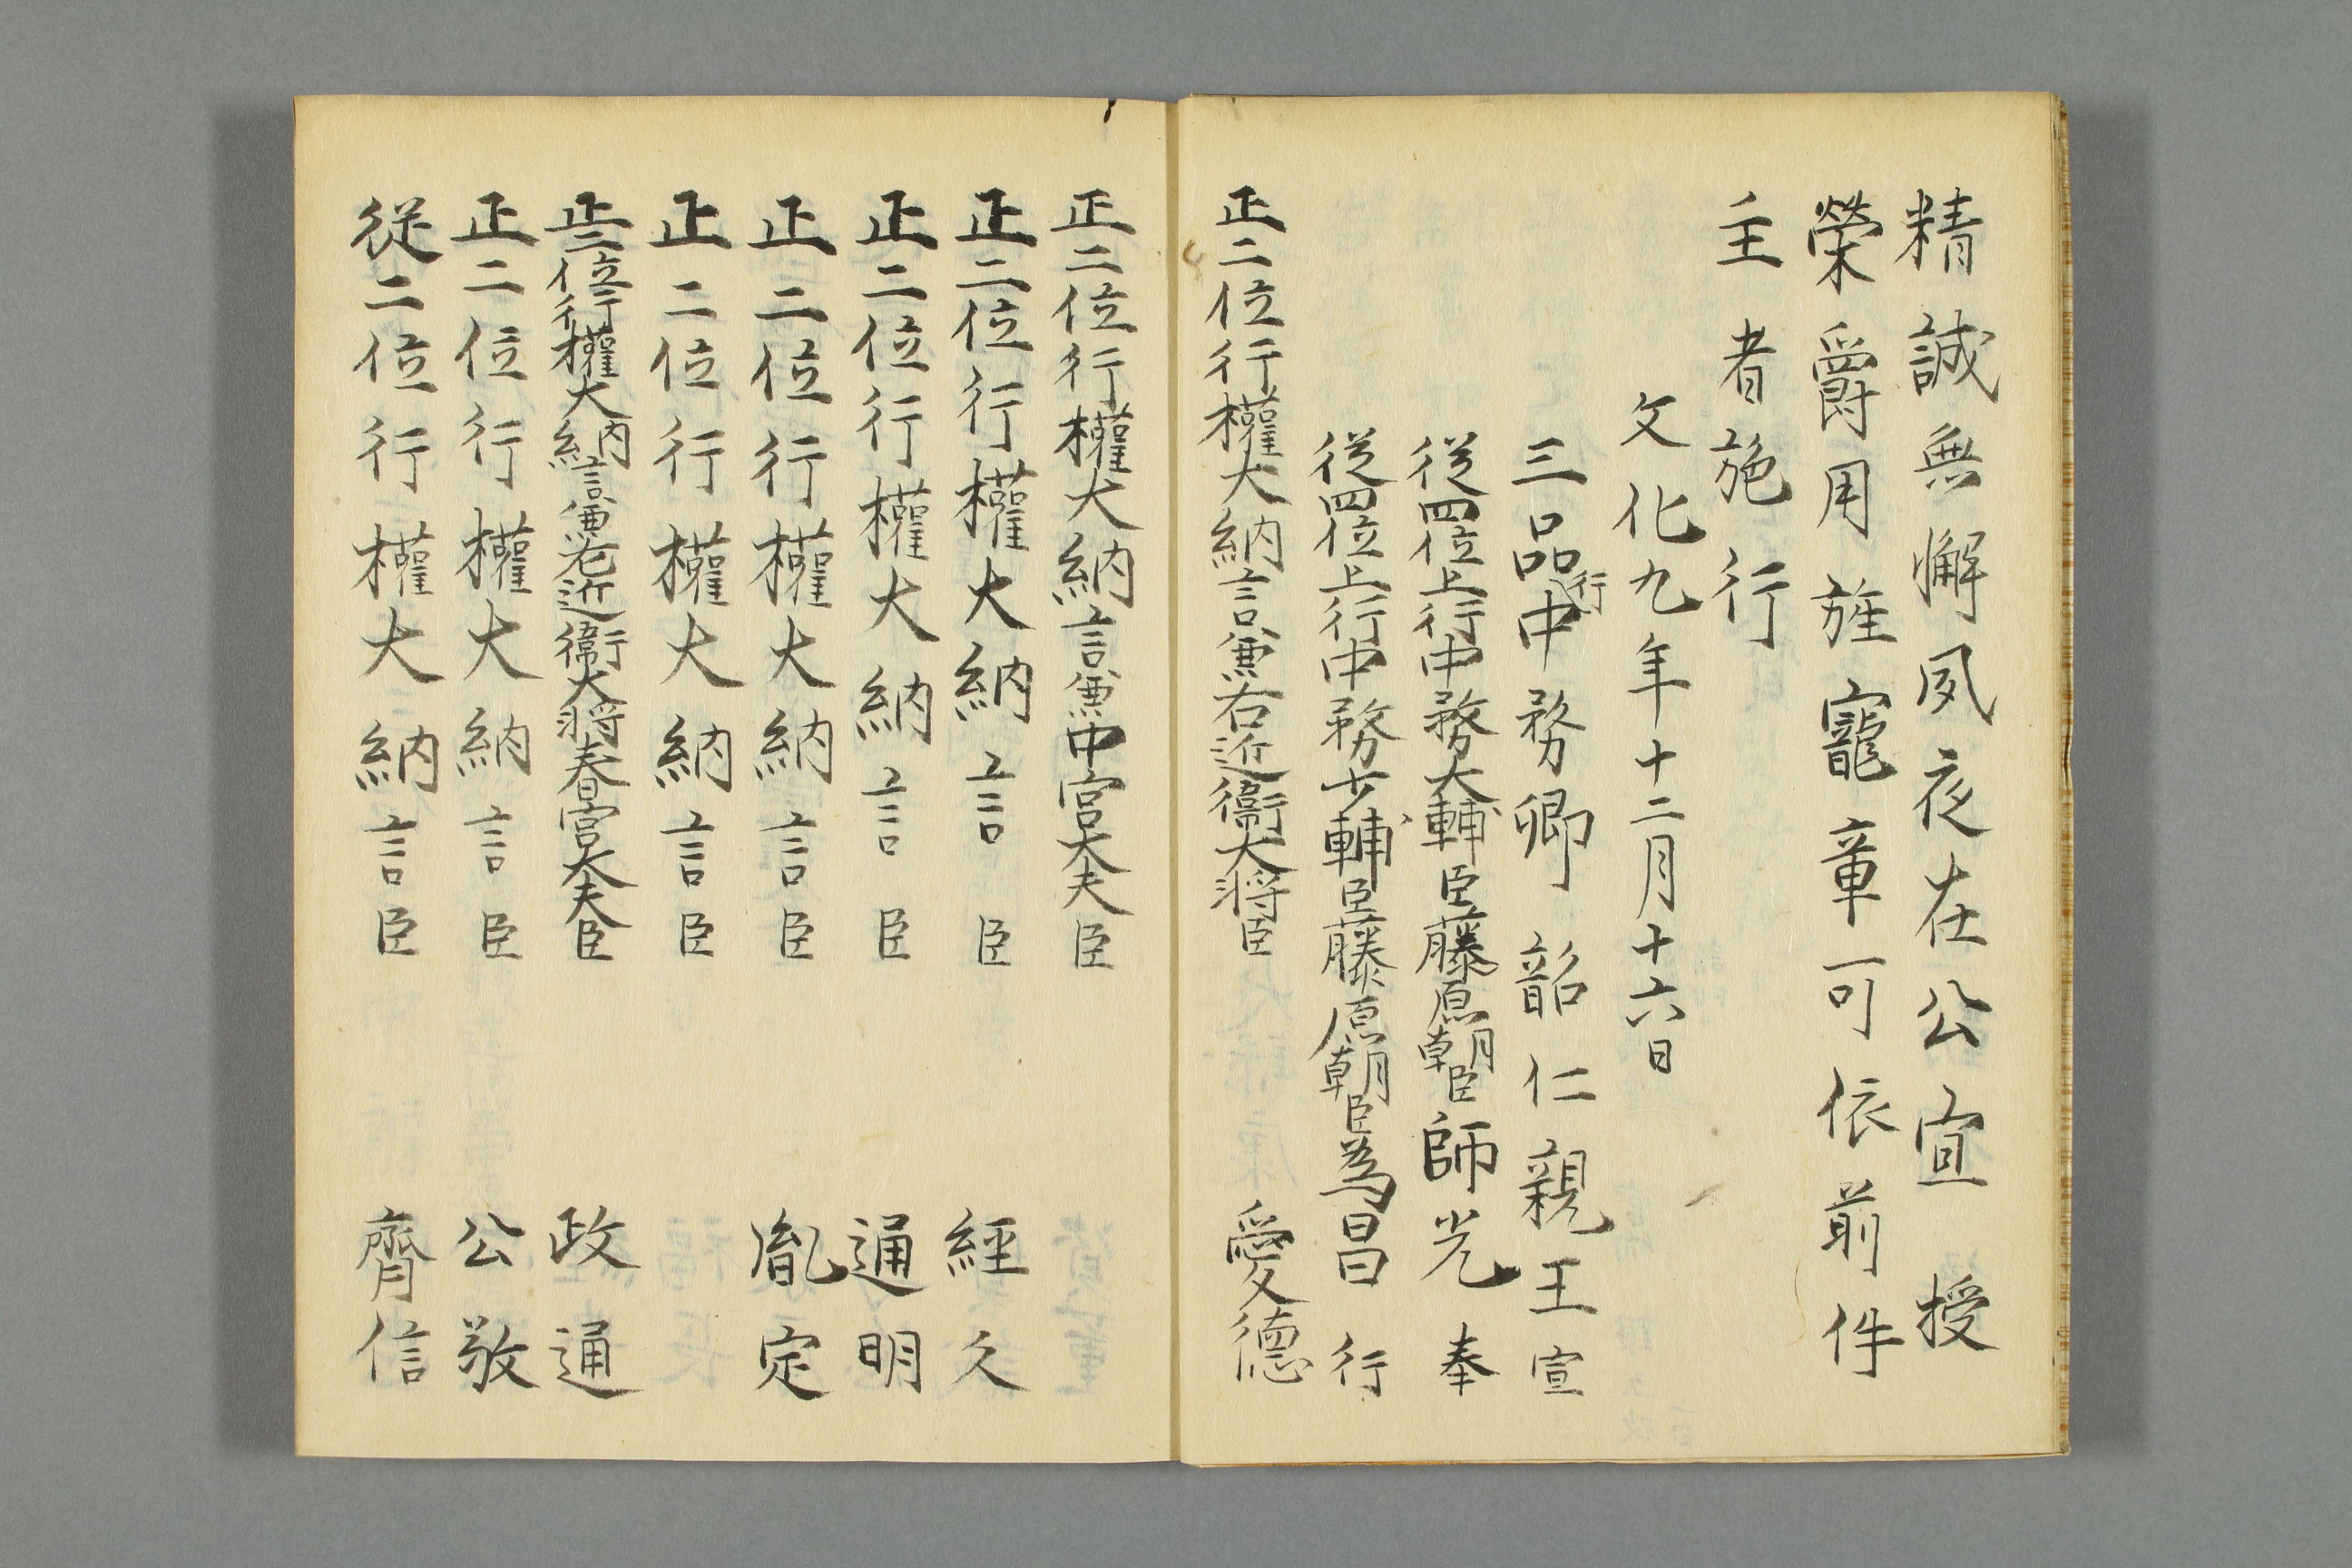 精誠無懈夙夜在公宣授
榮爵用旌寵章可依前件
主者施行
文化九年十二月十六日
三品行中務卿韶仁親王宣
従四位上行中務大輔臣藤原朝臣師光奉
従四位上行中務少輔臣藤原朝臣為昌行
正二位行權大納言兼右近衛大将臣愛德
正二位行權大納言兼中宮大夫臣
正二位行權大納言臣經久
正二位行權大納言臣通明
正二位行權大納言臣胤定
正二位行權大納言臣
正二位行權大納言兼右近衛大将春宮大夫臣政通
正二位行權大納言臣公敬
従二位行權大納言臣齊信